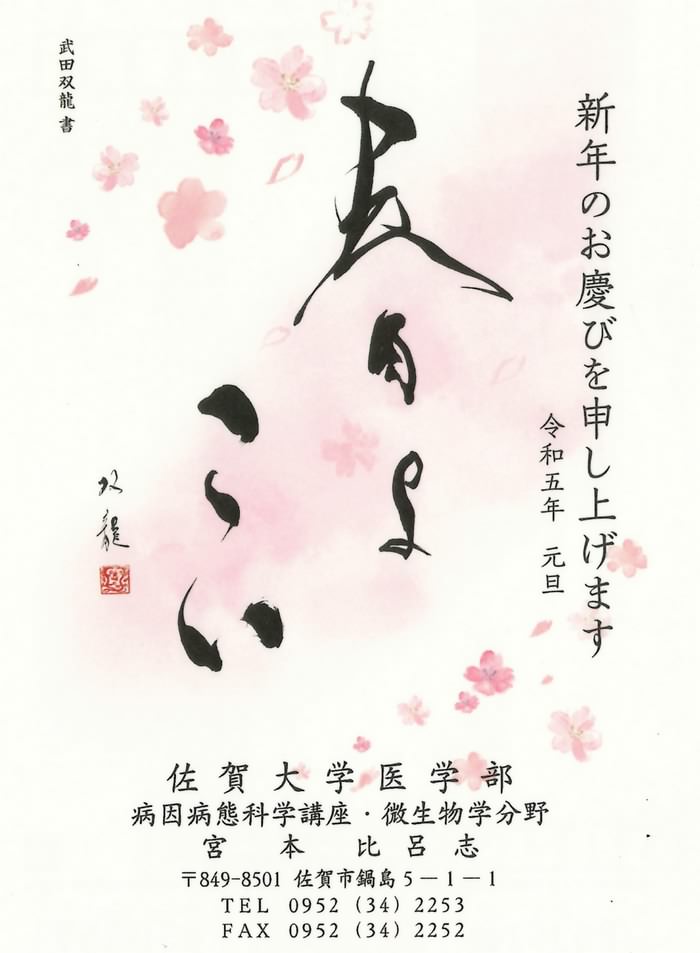 新年のお慶びを申し上げます
令和五年　元旦
春よ
こい
双龍
武田双龍 書
佐賀大学医学部
病因病態科学講座・微生物学分野
宮本　比呂志
〒849-8501 佐賀市鍋島５－１－１
TEL 0952 (34) 2253
FAX 0952 (34) 2252